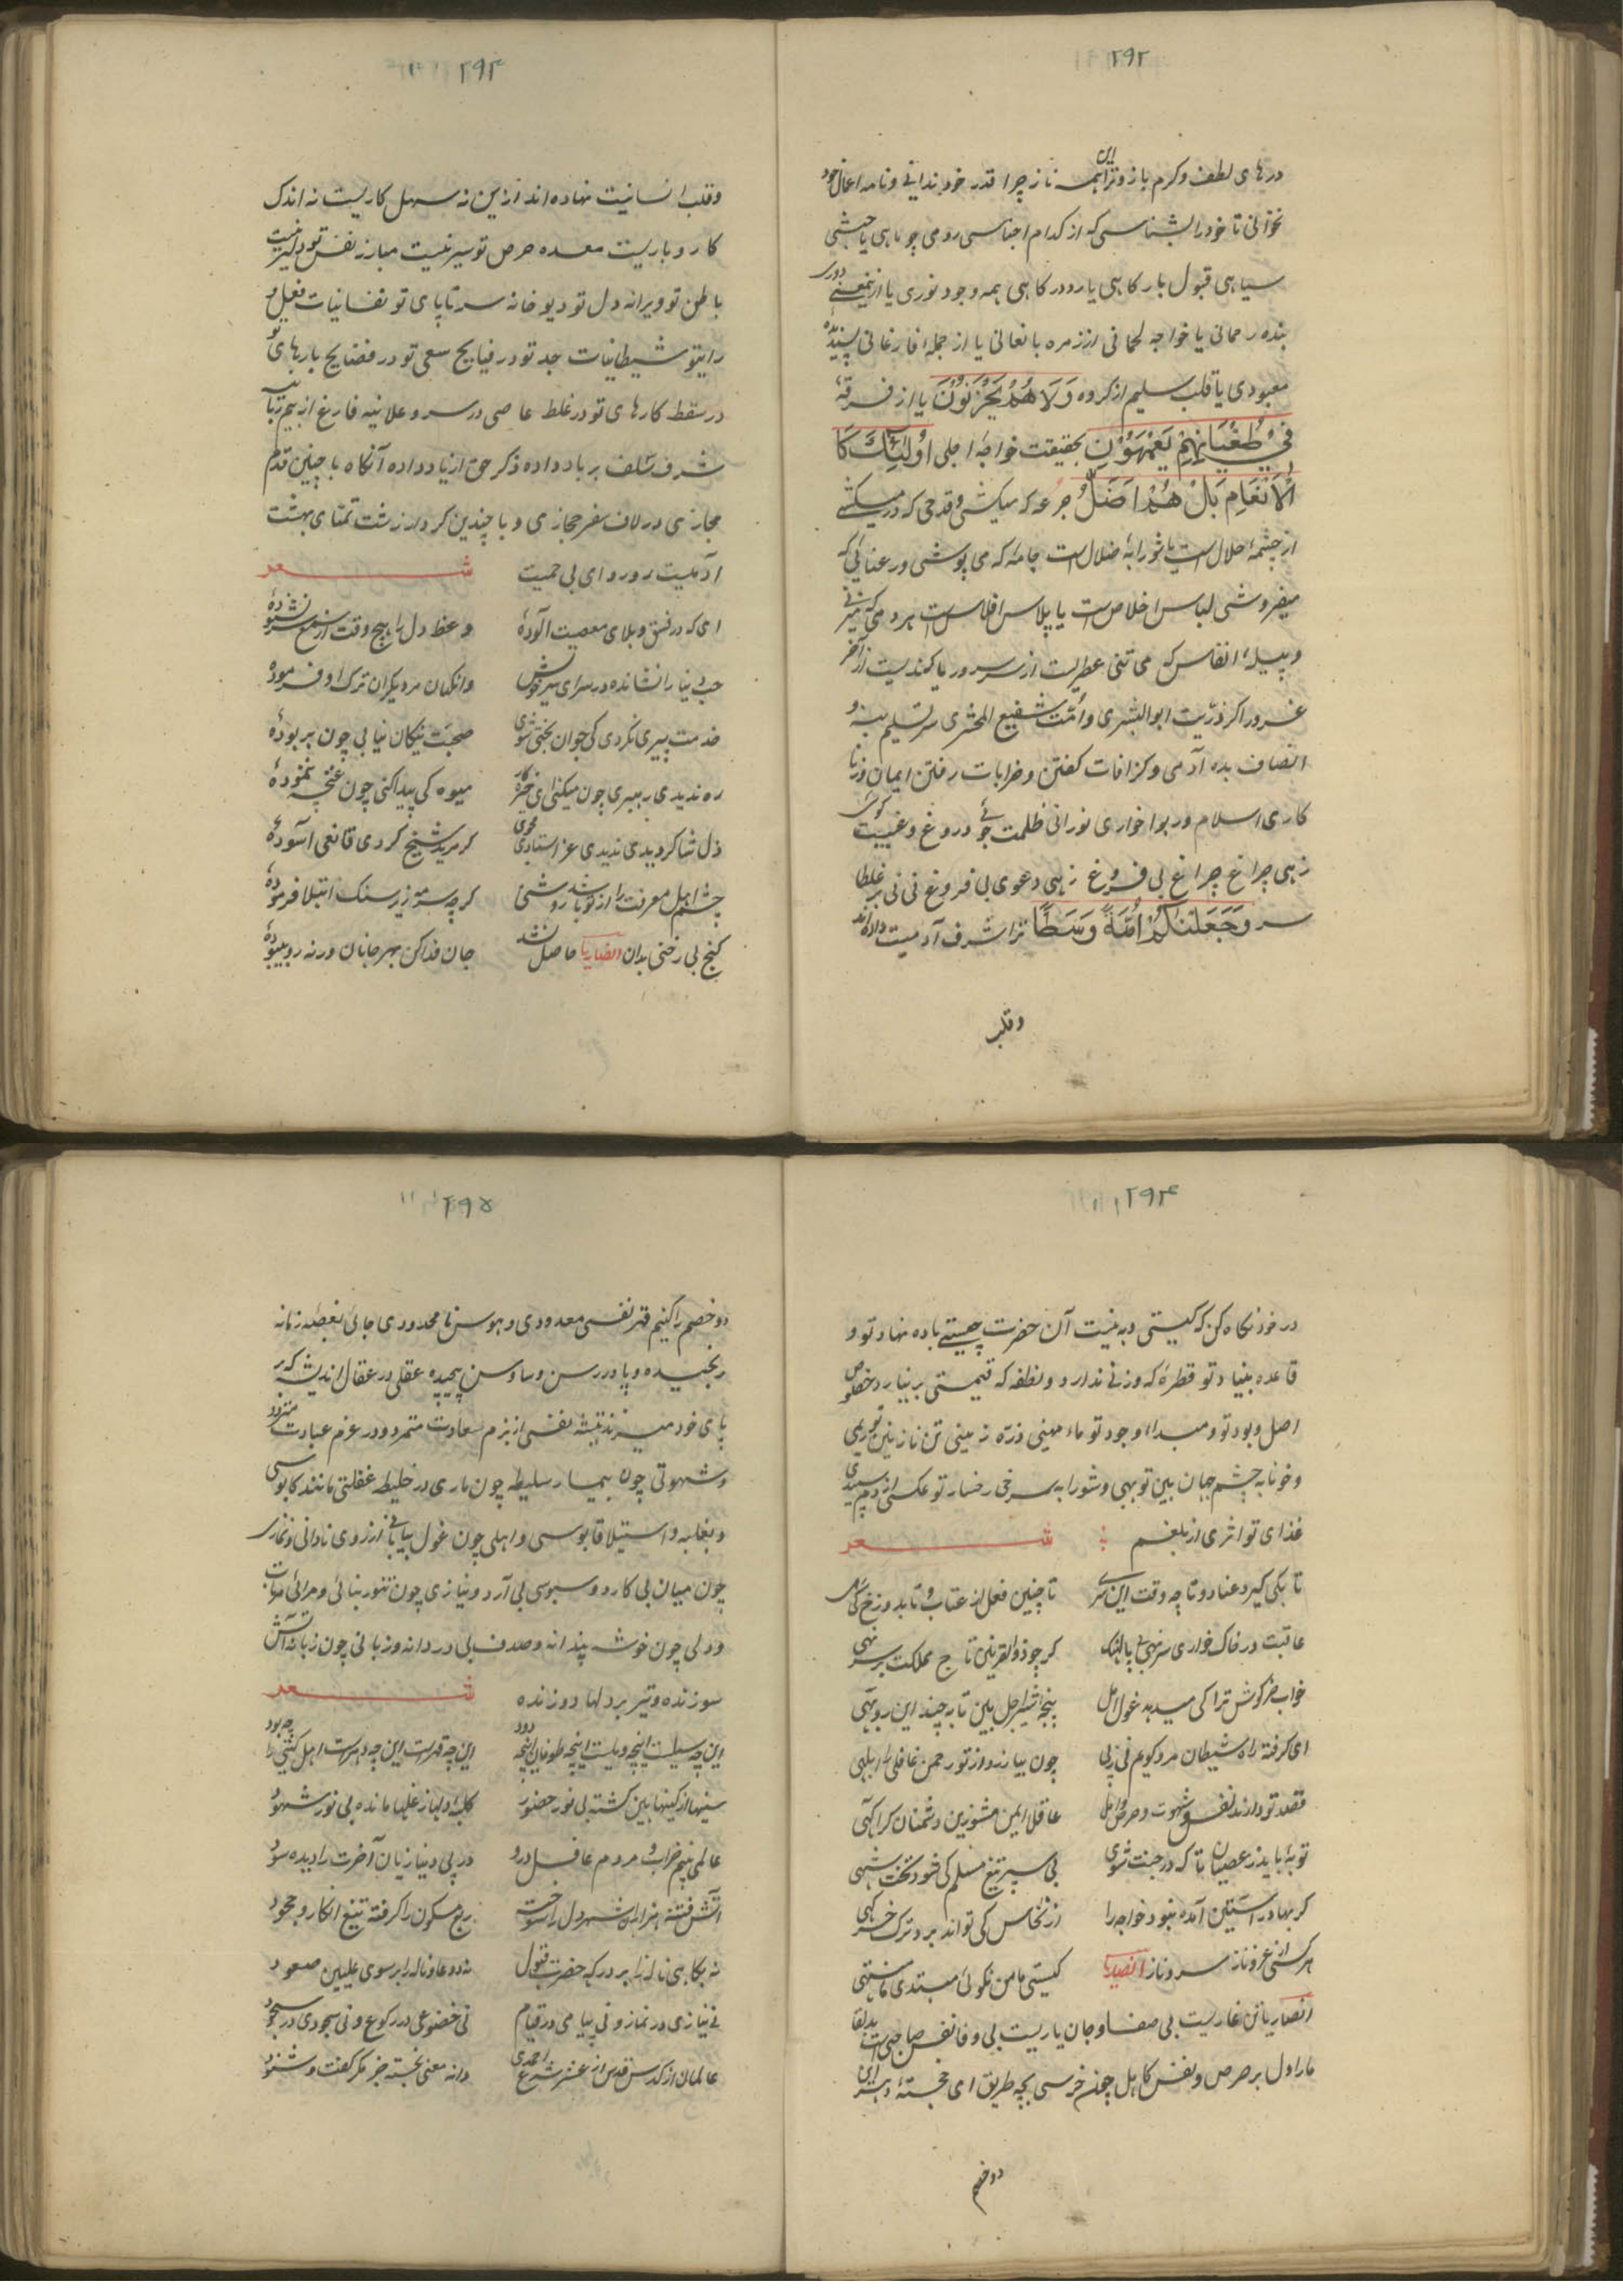 ۲۹۲
درهای لطف و کرم باز و ترا این همه ناز چرا قدر خود ندانی و نامه اعمال خود
نخوانی تا خود را بشناسی که از کدام اجناسی رومی چو ماهی یا حبشی
سیاهی قبول بارکاهی یا رد درکاهی همه وجود نوری یا ازین معنی دوری
بنده رحمانی یا خواجه لحمانی از زمره با نعانی یا از جمله افارغانی پسندیده
معبودی یا قلب سلیم از کروه وَلَا هُمْ یَحْزَنُوْنَ یا از فرقهٔ
فِیْ طُغْیَانِهِمْ یَعْمَهُوْنَ بحقیقت خواجه اجلی اُولٰئِكَ كَا
لْاَنْعَامِ بَلْ هُمْ اَضَلُّ جرعه که میکشی و قدحی که در میکشی
از چشمهٔ حلال است یا شورابهٔ ضلال است جامه که می پوشی و رعنائی که
میفروشی لباس اخلاص است یا پلاس افلاس است هر دمی که میزنی
و پیلهٔ انفاس که می تنی عطریست از سرور یا کندیست از آخر
غرور اکر ذرّیت ابوالبشری و اُمّت شفیع المحشری سر تسلیم بنه و
انصاف بده آدمی و کزافات کفتن و خرابات رفتن ایمان و زنا
کاری اسلام و ربوا خواری نورانی ظلمت جوئے دروغ و غیبت کوئی
زهی چراغ چراغ بی فروغ زهی دعوی بی فروغ نی نی بر غلطا
سر وَجَعَلْنٰكُمْ اُمَّةً وَسَطًا ترا شرف آدمیت داده اند
وقلب
۲۹۳
وقلب انسانیت نهاده اند ازین نه سهل کاریست نه اندک
کار و باریست معده حرص تو سیر نیست مبارز نفس تو دلیر نیست
باطن تو ویرانه دل تو دیو خانه سر تا پای تو نفسانیات فعل و
رایتو شیطانیات جد تو در فبایح سعی تو در فضایح بارهای تو
در سقط کارهای تو در غلط عاصی در سر و علانیه فارغ از بیم زبانیه
شرف سلف بر باد داده ذکر حق از یاد داده آنکاه با چنین قدم
مجازی در لاف سفر حجازی و با چندین کردار زشت تمنای بهشت
آدمیت رو رو ای بی حمیت شعر
ای که در فسق و بلای معصیت آلودهٔ وعظ دل را هیچ وقت از سمع سر نشنودهٔ
حب دنیا را نشانده در سرای سر خویش وانکهان مر دیکران ترک او فرمودهٔ
خدمت پیری نکردی کی جوان بختی شوی صحبت نیکان نیابی چون بد بودهٔ
ره ندیدی رهبری چون میکنی ای خیره کار میوه کی پیدا کنی چون غنچه ننمودهٔ
ذل شاکردی ندیدی عز استادی مجوی کر مرید شیخ کردی قانعی آسودهٔ
چشم اهل معرفت را از تو باشد روشنی کر چه سرمه زیر سنک ابتلا فرسودهٔ
کنج بی رنجی بدان انصاریا حاصل نشد جان فدا کن بهر جانان ورنه رو بیهودهٔ
۲۹۴
در خود نکاه کن که کیستی و به نسبت آن حضرت چیستے باده نهاد تو و
قاعده بنیاد تو قطرهٔ که وزنی ندارد و نطفه که قیمتی بر نیارد خصوص
اصل و بود تو و مبداء وجود تو ماء مهینی ذره زمینی تن نازنین تو ریمی
و خونابه چشم جهان بین تو پیهی و شورابه سرخی رخسار تو عکسی از دم سپیدی
غذای تو اثری از بلغم شعر
تا بکی کیرد عناد و تا چه وقت این سرکشی تا چنین فعل از عتاب و تا بدوزخ کی کشی
عاقبت در خاک خواری سر نهی بی پالهنک کر چو ذوالقرنین تاج مملکت بر سر نهی
خواب خرکوش ترا کی میدهد غول امل پنجه شیر اجل بین تا به چند این روبهی
ای کرفته راه شیطان مر دکویم نی زنی چون بیازرد از تو رحمن غافلی یا ابلهی
قصد تو دارند نفس و شهوت و حرص و امل عاقلا ایمن مشو زین دشمنان کر آکهی
توبه باید ز عصیان تا که در جنت شوی بی سر تیغ مسلم کی شود تخت شهی
کر بها در آستین آمده نبود خواجه را از نخاس کی تواند برد ترک خرکهی
هر کس از عز و ناز سر و ناز انصاریا کیستی ما من نکوئی مبتدی یا منتهی
انصاریا تن غاریست بی صفا و جان یاریست بی وفا نفس صاحبی است بد لقا
ما را دل بر حرص و نفس کاهل چون خرسی بچه طریق ای خجسته و سرای
دو خصم
۲۹۵
دو خصم را کنیم قهر نفسی معدودی و هوس نا محدودی جائی بغصهٔ زمانه
رنجیده و پا در رسن وساوس پیچیده عقلی در عقال اندیشه که بر
پای خود میزند تیشه نفسی از بزم سعادت متمرد و در عزم عبادت متردد
و شهوتی چون بیمار سلیطه چون ماری در خلیطه غفلتی مانند کابوسی
و بغلبه و استیلا قابوسی و املی چون غول بیابانی آرزوی نادانی و نمازی
چون میان بی کار دو سبوسی بی آرد و نیازی چون تنور بنائی و مرائی
و دلی چون خوشه پنداشته و صدف بی دردانه و زبانی چون زبانه آتش
سوزنده و تیر بر دلها دوزنده شعر
این چه سیلست اینچه ویلست اینچه طوفان اینچه دود این چه قهرست این چه دهرست اهل کشتی را چه بود
سینها از کینها بین کشته بی نور حضور کلبهٔ دلها ز غلها مانده بی نور شهود
عالمی بینم خراب و مردم غافل درو در پی دنیا زیان آخرت را دیده سود
آتش فتنه هزاران شهر دل را سوخت ربع مسکون را کرفته تیغ انکار و جحود
نه بکا بی ناله را بر درکه حضرت قبول نه دود عا و ناله را بر سوی علیین صعود
نی نیازی در نماز و نی پیامی در قیام نی خضوعی در رکوع و نی سجودی در سجود
عالمان از کدرس قدس از عشر شرع احمدی دانه معنی نجسته جز مکر کفت و شنود